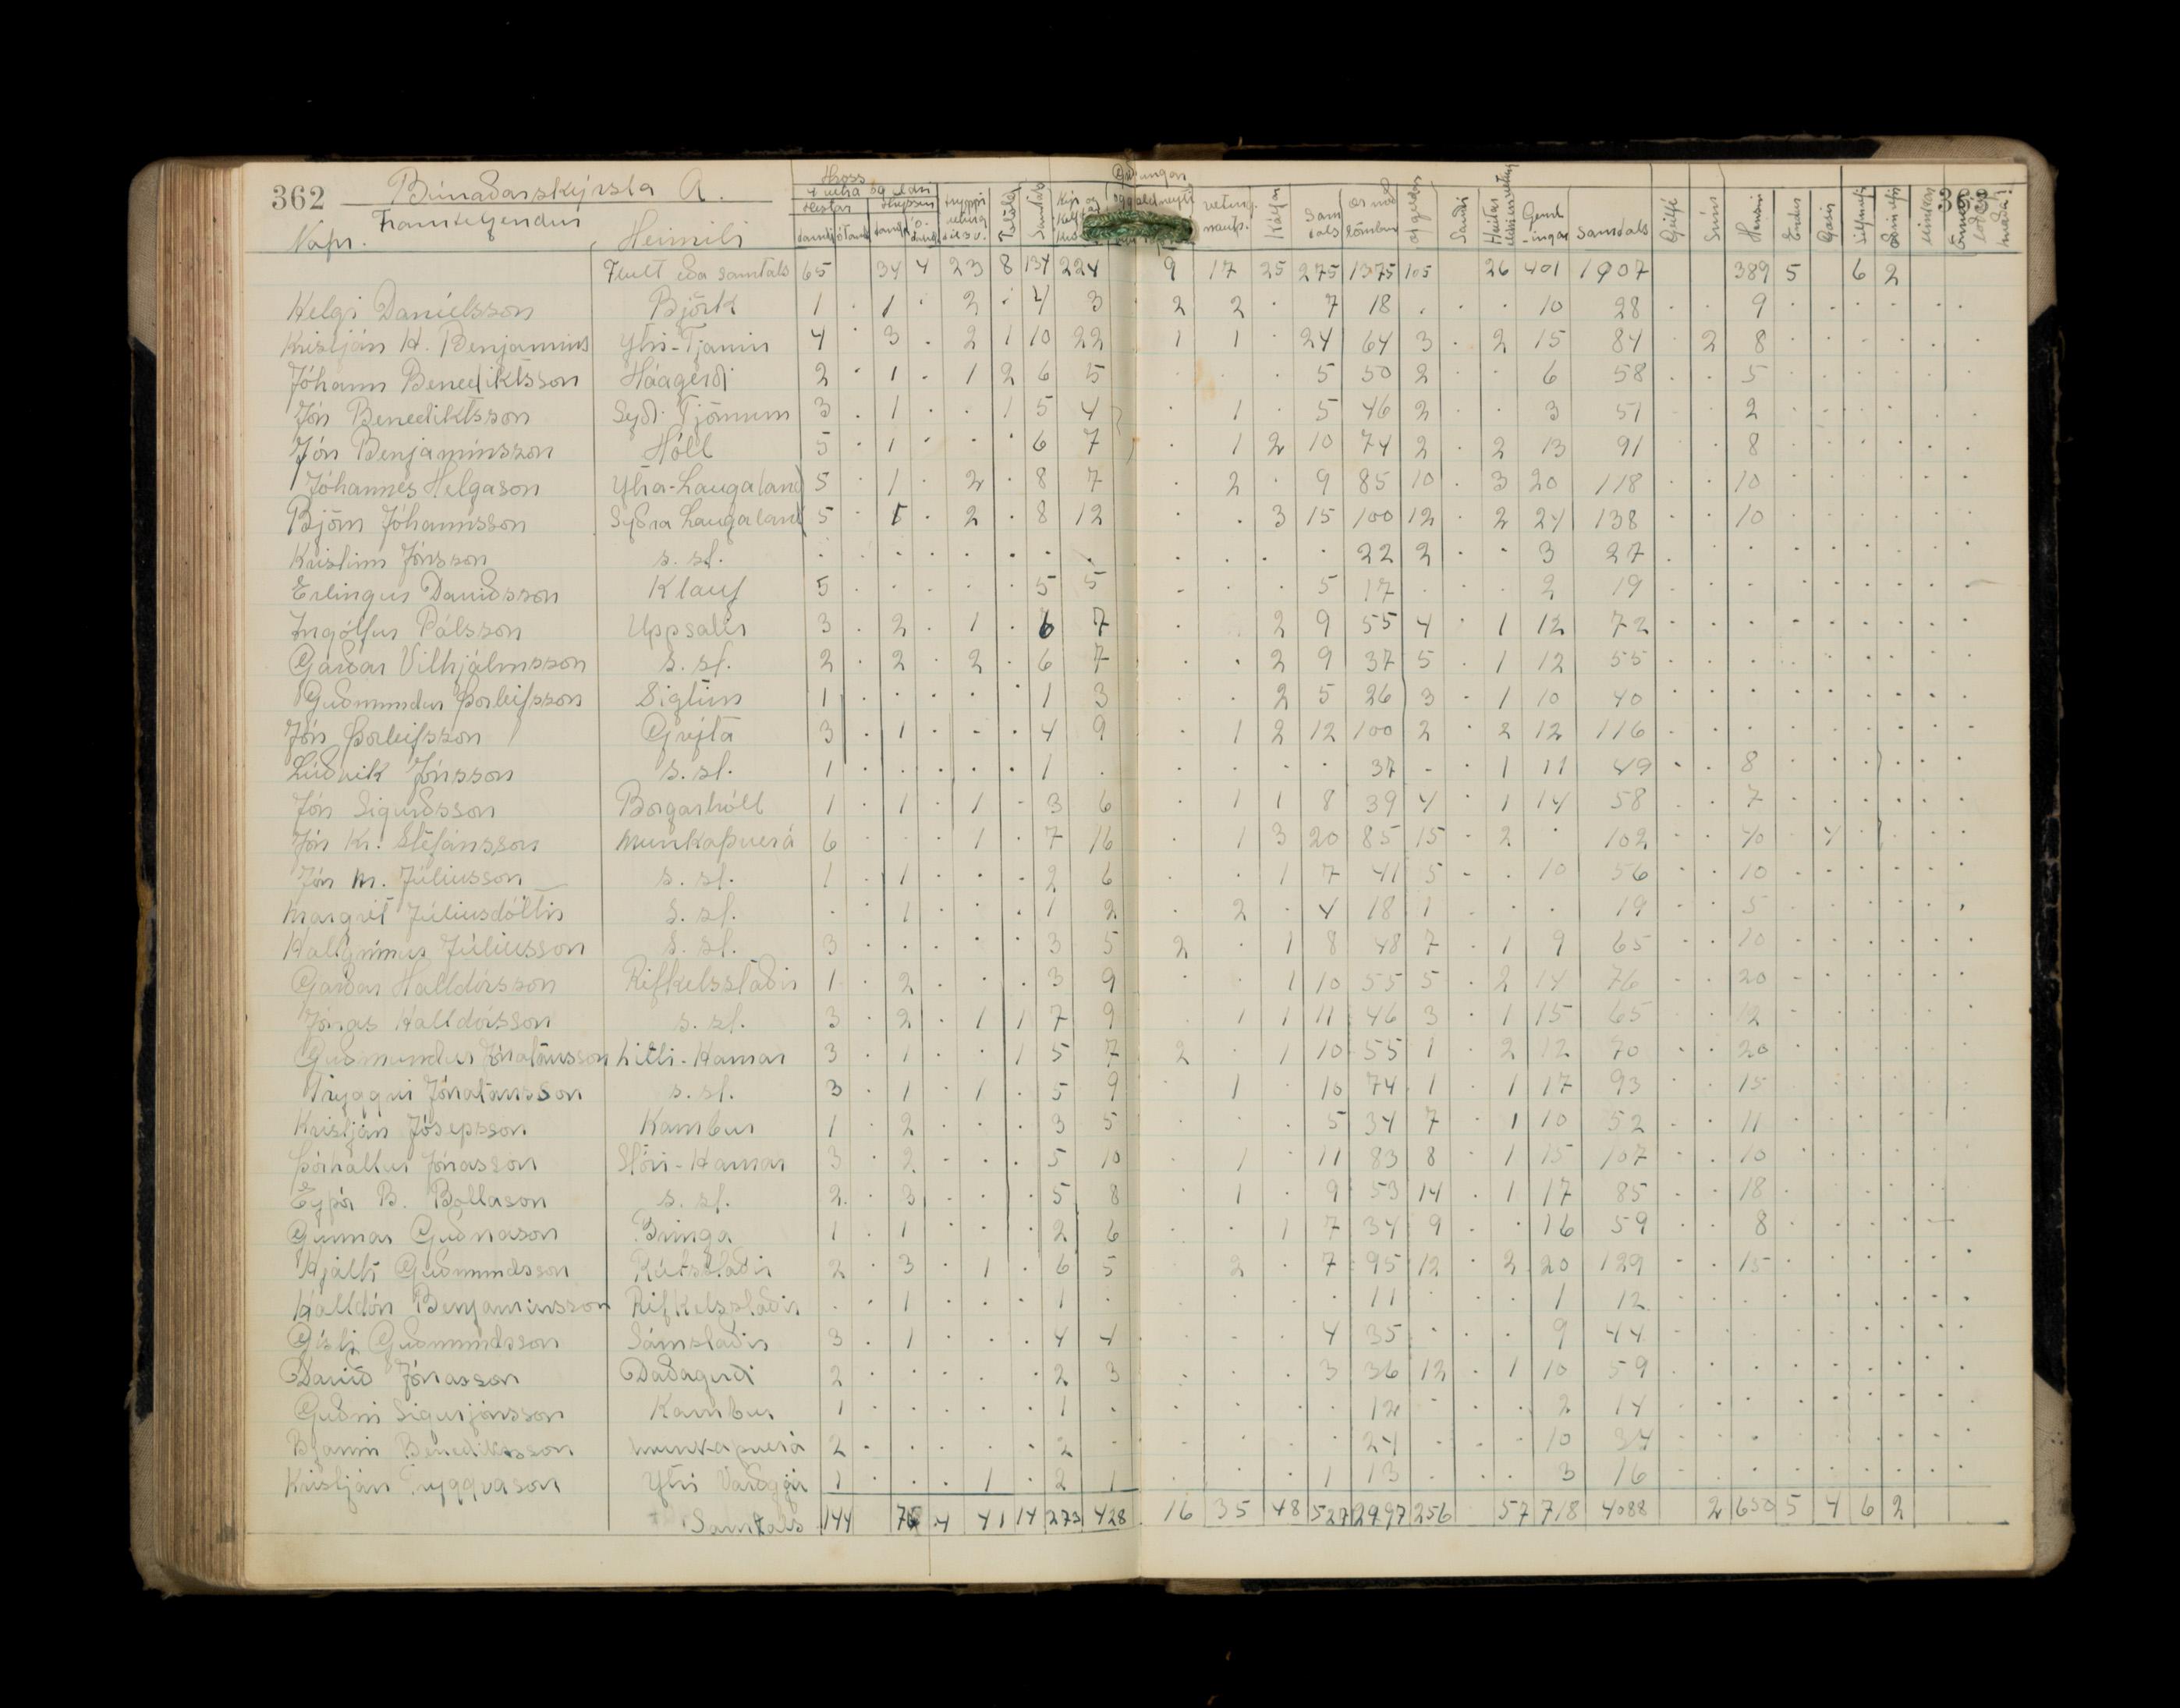 362 Búnaðarskýrsla A.
Framteljendur
Nafn. Heimili
Hross
4 vetra og eldri
Hestar Hryssur tryppi Folöld Samtals Kýr og
tamdir ótamd. tamd. ó-tamd.
vetur. naut. Kálfar Sam tals ær með lömbum ær geldar Sauðir Hrútar Geml-ingar samtals Geitfé Svín Hænsni Endur Gæsir
Flutt eða samtals 65 34 4 23 8 134 224 9 17 25 275 1375 105 26 401 1907 389 5 6 2
Helgi Daníelsson Björk 1 · 1 · 2 · 4 3 2 2 · 7 18 · · · 10 28 · · 9 · · · · · ·
Kristján H. Benjamíns Ytri-Tjarnir 4 · 3 · 2 1 10 22 1 1 · 24 64 3 · 2 15 84 · 2 8 · · · · · ·
Jóhann Benediktsson Háagerði 2 · 1 · 1 2 6 5 · · · 5 50 2 · · 6 58 · · 5 · · · · · ·
Jón Benediktsson Syðri Tjörnum 3 · 1 · · 1 5 4 · 1 · 5 46 2 · · 3 51 · · 2 · · · · · ·
Jón Benjamínsson Hóll 5 · 1 · · · 6 7 · 1 2 10 74 2 · 2 13 91 · · 8 · · · · · ·
Jóhannes Helgason Ytra-Laugaland 5 · 1 · 2 · 8 7 · 2 · 9 85 10 · 3 20 118 · · 10 · · · · · ·
Björn Jóhannsson Syðra Laugaland 5 · 1 · 2 · 8 12 · · 3 15 100 12 · 2 24 138 · · 10 · · · · · ·
Kristinn Jónsson s. st. · · · · · · · · · · · · 22 2 · · 3 27 · · · · · · · · ·
Erlingur Davíðsson Klauf 5 · · · · · 5 5 · · · 5 17 · · · 2 19 · · · · · · · · ·
Ingólfur Pálsson Uppsalir 3 · 2 · 1 · 6 7 · · 2 9 55 4 · 1 12 72 · · · · · · · · ·
Garðar Vilhjálmsson s. st. 2 · 2 · 2 · 6 7 · · 2 9 37 5 · 1 12 55 · · · · · · · · ·
Guðmundur Þorleifsson Sigtún 1 · · · · · 1 3 · · 2 5 26 3 · 1 10 40 · · · · · · · · ·
Jón Þorleifsson Grýta 3 · 1 · · · 4 9 · 1 2 12 100 2 · 2 12 116 · · · · · · · · ·
Lúðvik Jónsson s. st. 1 · · · · · 1 · · · · · 37 · · 1 11 49 · · 8 · · · · · ·
Jón Sigurðsson Borgarhóll 1 · 1 · 1 · 3 6 · 1 1 8 39 4 · 1 14 58 · · 7 · · · · · ·
Jón Kr. Stefánsson Munkaþverá 6 · · · 1 · 7 16 · 1 3 20 85 15 · 2 · 102 · · 40 · 4 · · · ·
Jón M. Júliusson s. st. 1 · 1 · · · 2 6 · · 1 7 41 5 · · 10 56 · · 10 · · · · · ·
Margrét Júliusdóttir s. st. · · 1 · · · 1 2 · 2 · 4 18 1 · · · 19 · · 5 · · · · · ·
Hallgrímur Júliusson s. st. 3 · · · · · 3 5 2 · 1 8 48 7 · 1 9 65 · · 10 · · · · · ·
Garðar Halldórsson Rifkelsstaðir 1 · 2 · · · 3 9 · · 1 10 55 5 · 2 14 76 · · 20 · · · · · ·
Jónas Halldórsson s. st. 3 · 2 · 1 1 7 9 · 1 1 11 46 3 · 1 15 65 · · 12 · · · · · ·
Guðmundur Jónatansson Litli-Hamar 3 · 1 · · 1 5 7 2 · 1 10 55 1 · 2 12 70 · · 20 · · · · · ·
Tryggvi Jónatansson s. st. 3 · 1 · 1 · 5 9 · 1 · 10 74 1 · 1 17 93 · · 15 · · · · · ·
Kristján Jósepsson Kambur 1 · 2 · · · 3 5 · · · 5 34 7 · 1 10 52 · · 11 · · · · · ·
Þórhallur Jónasson Stóri-Hamar 3 · 2 · · · 5 10 · 1 · 11 83 8 · 1 15 107 · · 10 · · · · · ·
Eyþór B. Bollason s. st. 2 · 3 · · · 5 8 · 1 · 9 53 14 · 1 17 85 · · 18 · · · · · ·
Gunnar Guðnason Bringa 1 · 1 · · · 2 6 · · 1 7 34 9 · · 16 59 · · 8 · · · · · ·
Hjalti Guðmundsson Rútsstaðir 2 · 3 · 1 · 6 5 · 2 · 7 95 12 · 2 20 129 · · 15 · · · · · ·
Halldór Benjamínsson Rifkelsstaðir · · 1 · · · 1 · · · · · 11 · · · 1 12 · · · · · · · · ·
Gísli Guðmundsson Sámsstaðir 3 · 1 · · · 4 4 · · · 4 35 · · · 9 44 · · · · · · · · ·
Davíð Jónasson Daðagerði 2 · · · · · 2 3 · · · 3 36 12 · 1 10 59 · · · · · · · · ·
Guðni Sigurjónsson Kambur 1 · · · · · 1 · · · · · 12 · · · 2 14 · · · · · · · · ·
Bjarni Benediktsson Munkaþverá 2 · · · · · 2 · · · · · 24 · · · 10 34 · · · · · · · · ·
Kristján Tryggvason Ytri Varðgjá 1 · · · 1 · 2 1 · · · 1 13 · · · 3 16 · · · · · · · · ·
Samtals 144 4 41 14 273 428 16 35 48 527 2997 256 57 718 4088 2 650 5 4 6 2